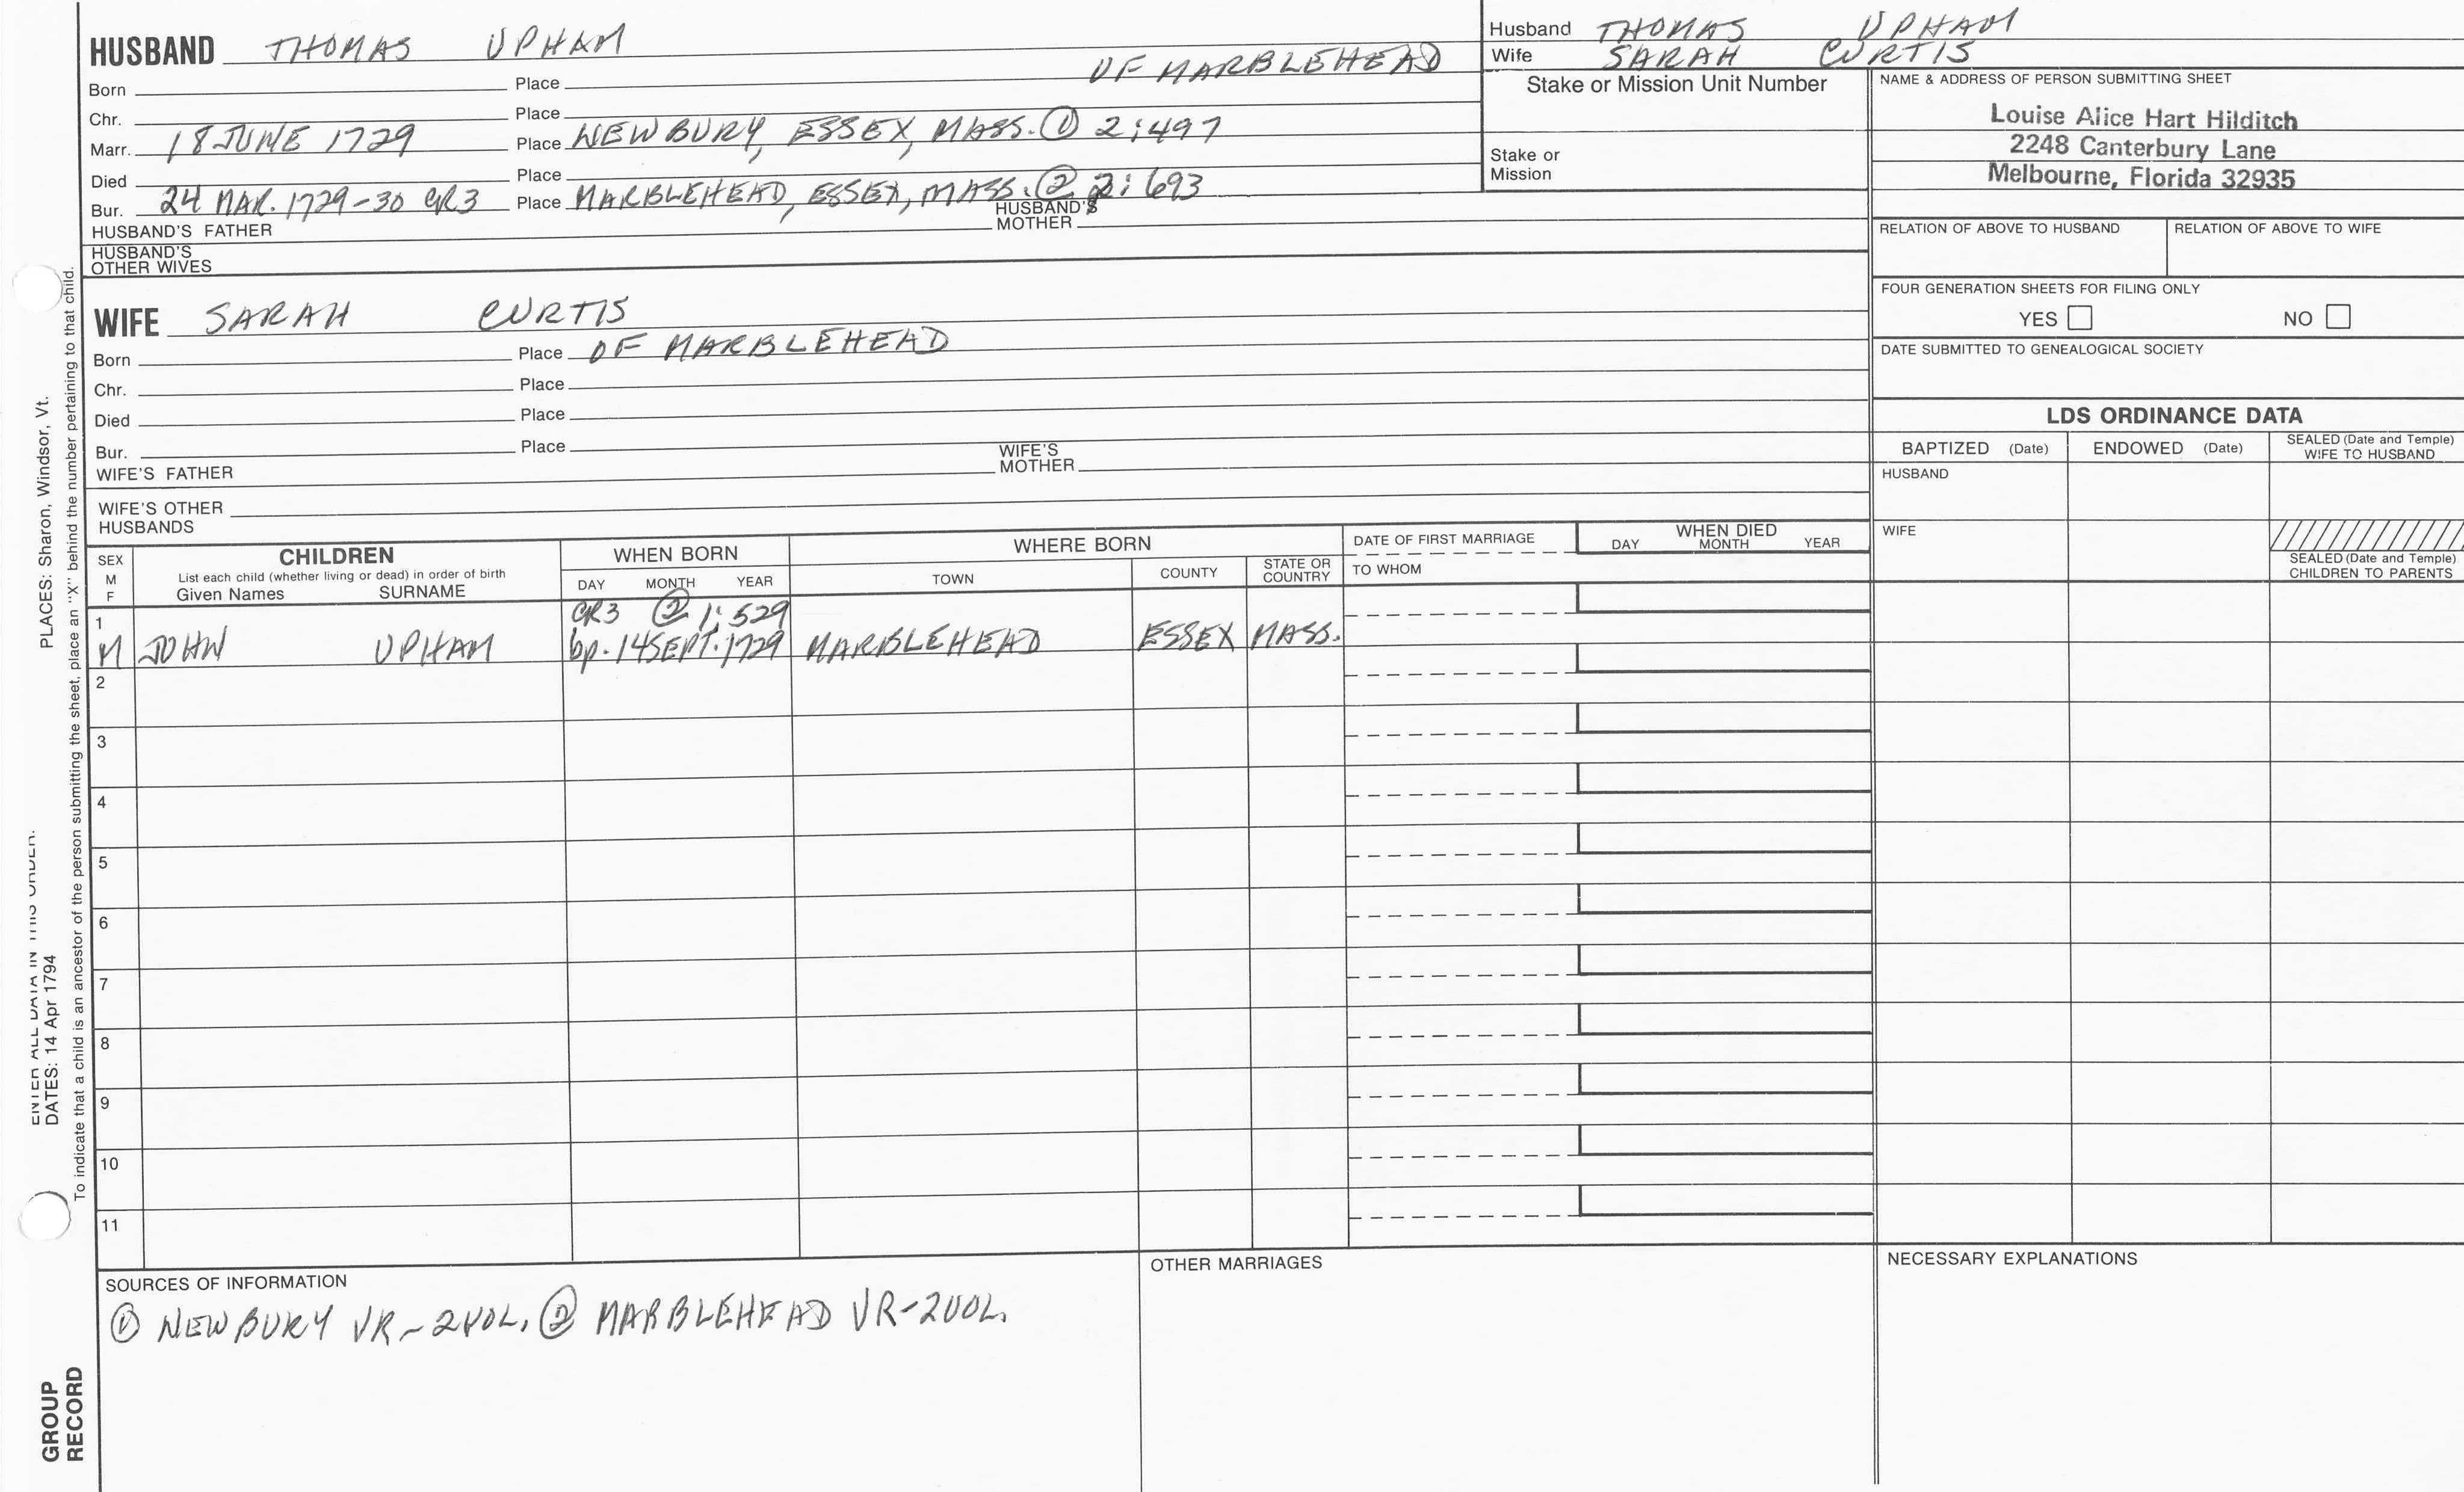 HUSBAND THOMAS UPHAM
Born Place OF MARBLEHEAD
Chr. Place
Marr. 18 JUNE 1729 Place NEWBURY, ESSEX, MASS. ① 2:497
Died Place
Bur. 24 MAR. 1729-30 GR3 Place MARBLEHEAD, ESSEX, MASS. ② 2:693
HUSBAND'S FATHER HUSBAND'S MOTHER
HUSBAND'S OTHER WIVES
WIFE SARAH CURTIS
Born Place OF MARBLEHEAD
Chr. Place
Died Place
Bur. Place
WIFE'S FATHER WIFE'S MOTHER
WIFE'S OTHER HUSBANDS
Husband THOMAS UPHAM
Wife SARAH CURTIS
Stake or Mission Unit Number
Stake or Mission
NAME & ADDRESS OF PERSON SUBMITTING SHEET
Louise Alice Hart Hilditch
2248 Canterbury Lane
Melbourne, Florida 32935
RELATION OF ABOVE TO HUSBAND RELATION OF ABOVE TO WIFE
FOUR GENERATION SHEETS FOR FILING ONLY
YES NO
DATE SUBMITTED TO GENEALOGICAL SOCIETY
LDS ORDINANCE DATA
BAPTIZED (Date) ENDOWED (Date) SEALED (Date and Temple) WIFE TO HUSBAND
HUSBAND
WIFE
SEALED (Date and Temple) CHILDREN TO PARENTS
SEX M F
CHILDREN
List each child (whether living or dead) in order of birth
Given Names SURNAME
WHEN BORN
DAY MONTH YEAR
WHERE BORN
TOWN COUNTY STATE OR COUNTRY
DATE OF FIRST MARRIAGE
TO WHOM
WHEN DIED
DAY MONTH YEAR
1 GR3 ② 1:529
M JOHN UPHAM bp. 14 SEPT. 1729 MARBLEHEAD ESSEX MASS.
2
3
4
5
6
7
8
9
10
11
SOURCES OF INFORMATION
① NEWBURY VR-2VOL. ② MARBLEHEAD VR-2VOL.
OTHER MARRIAGES
NECESSARY EXPLANATIONS
ENTER ALL DATA IN THIS ORDER.
PLACES: Sharon, Windsor, Vt.
DATES: 14 Apr 1794
To indicate that a child is an ancestor of the person submitting the sheet, place an "X" behind the number pertaining to that child.
GROUP
RECORD